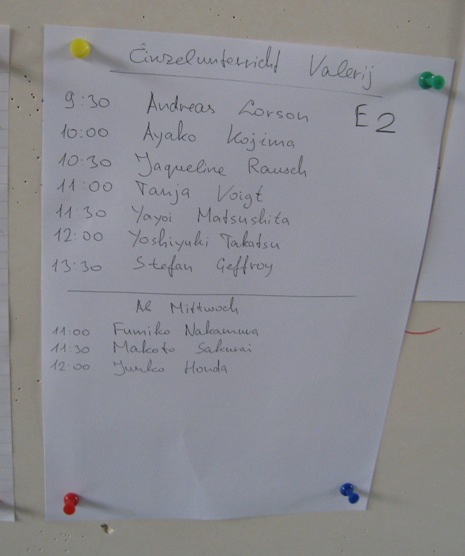 Einzelunterricht Valerij
9:30 Andreas Lorson E2
10:00 Ayako Kojima
10:30 Jaqueline Rausch
11:00 Tanja Voigt
11:30 Yayoi Matsushita
12:00 Yoshiyuki Takatsu
13:30 Stefan Geffroy
Ab Mittwoch
11:00 Fumiko Nakamura
11:30 Makoto Sakurai
12:00 Junko Honda